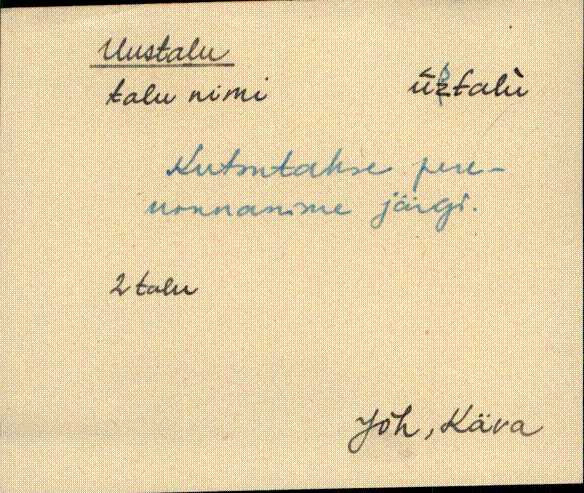 Uustalu
talu nimi ūstalù
Kutsutakse pere-
konnanime järgi.
2 talu
Jõh, Käva